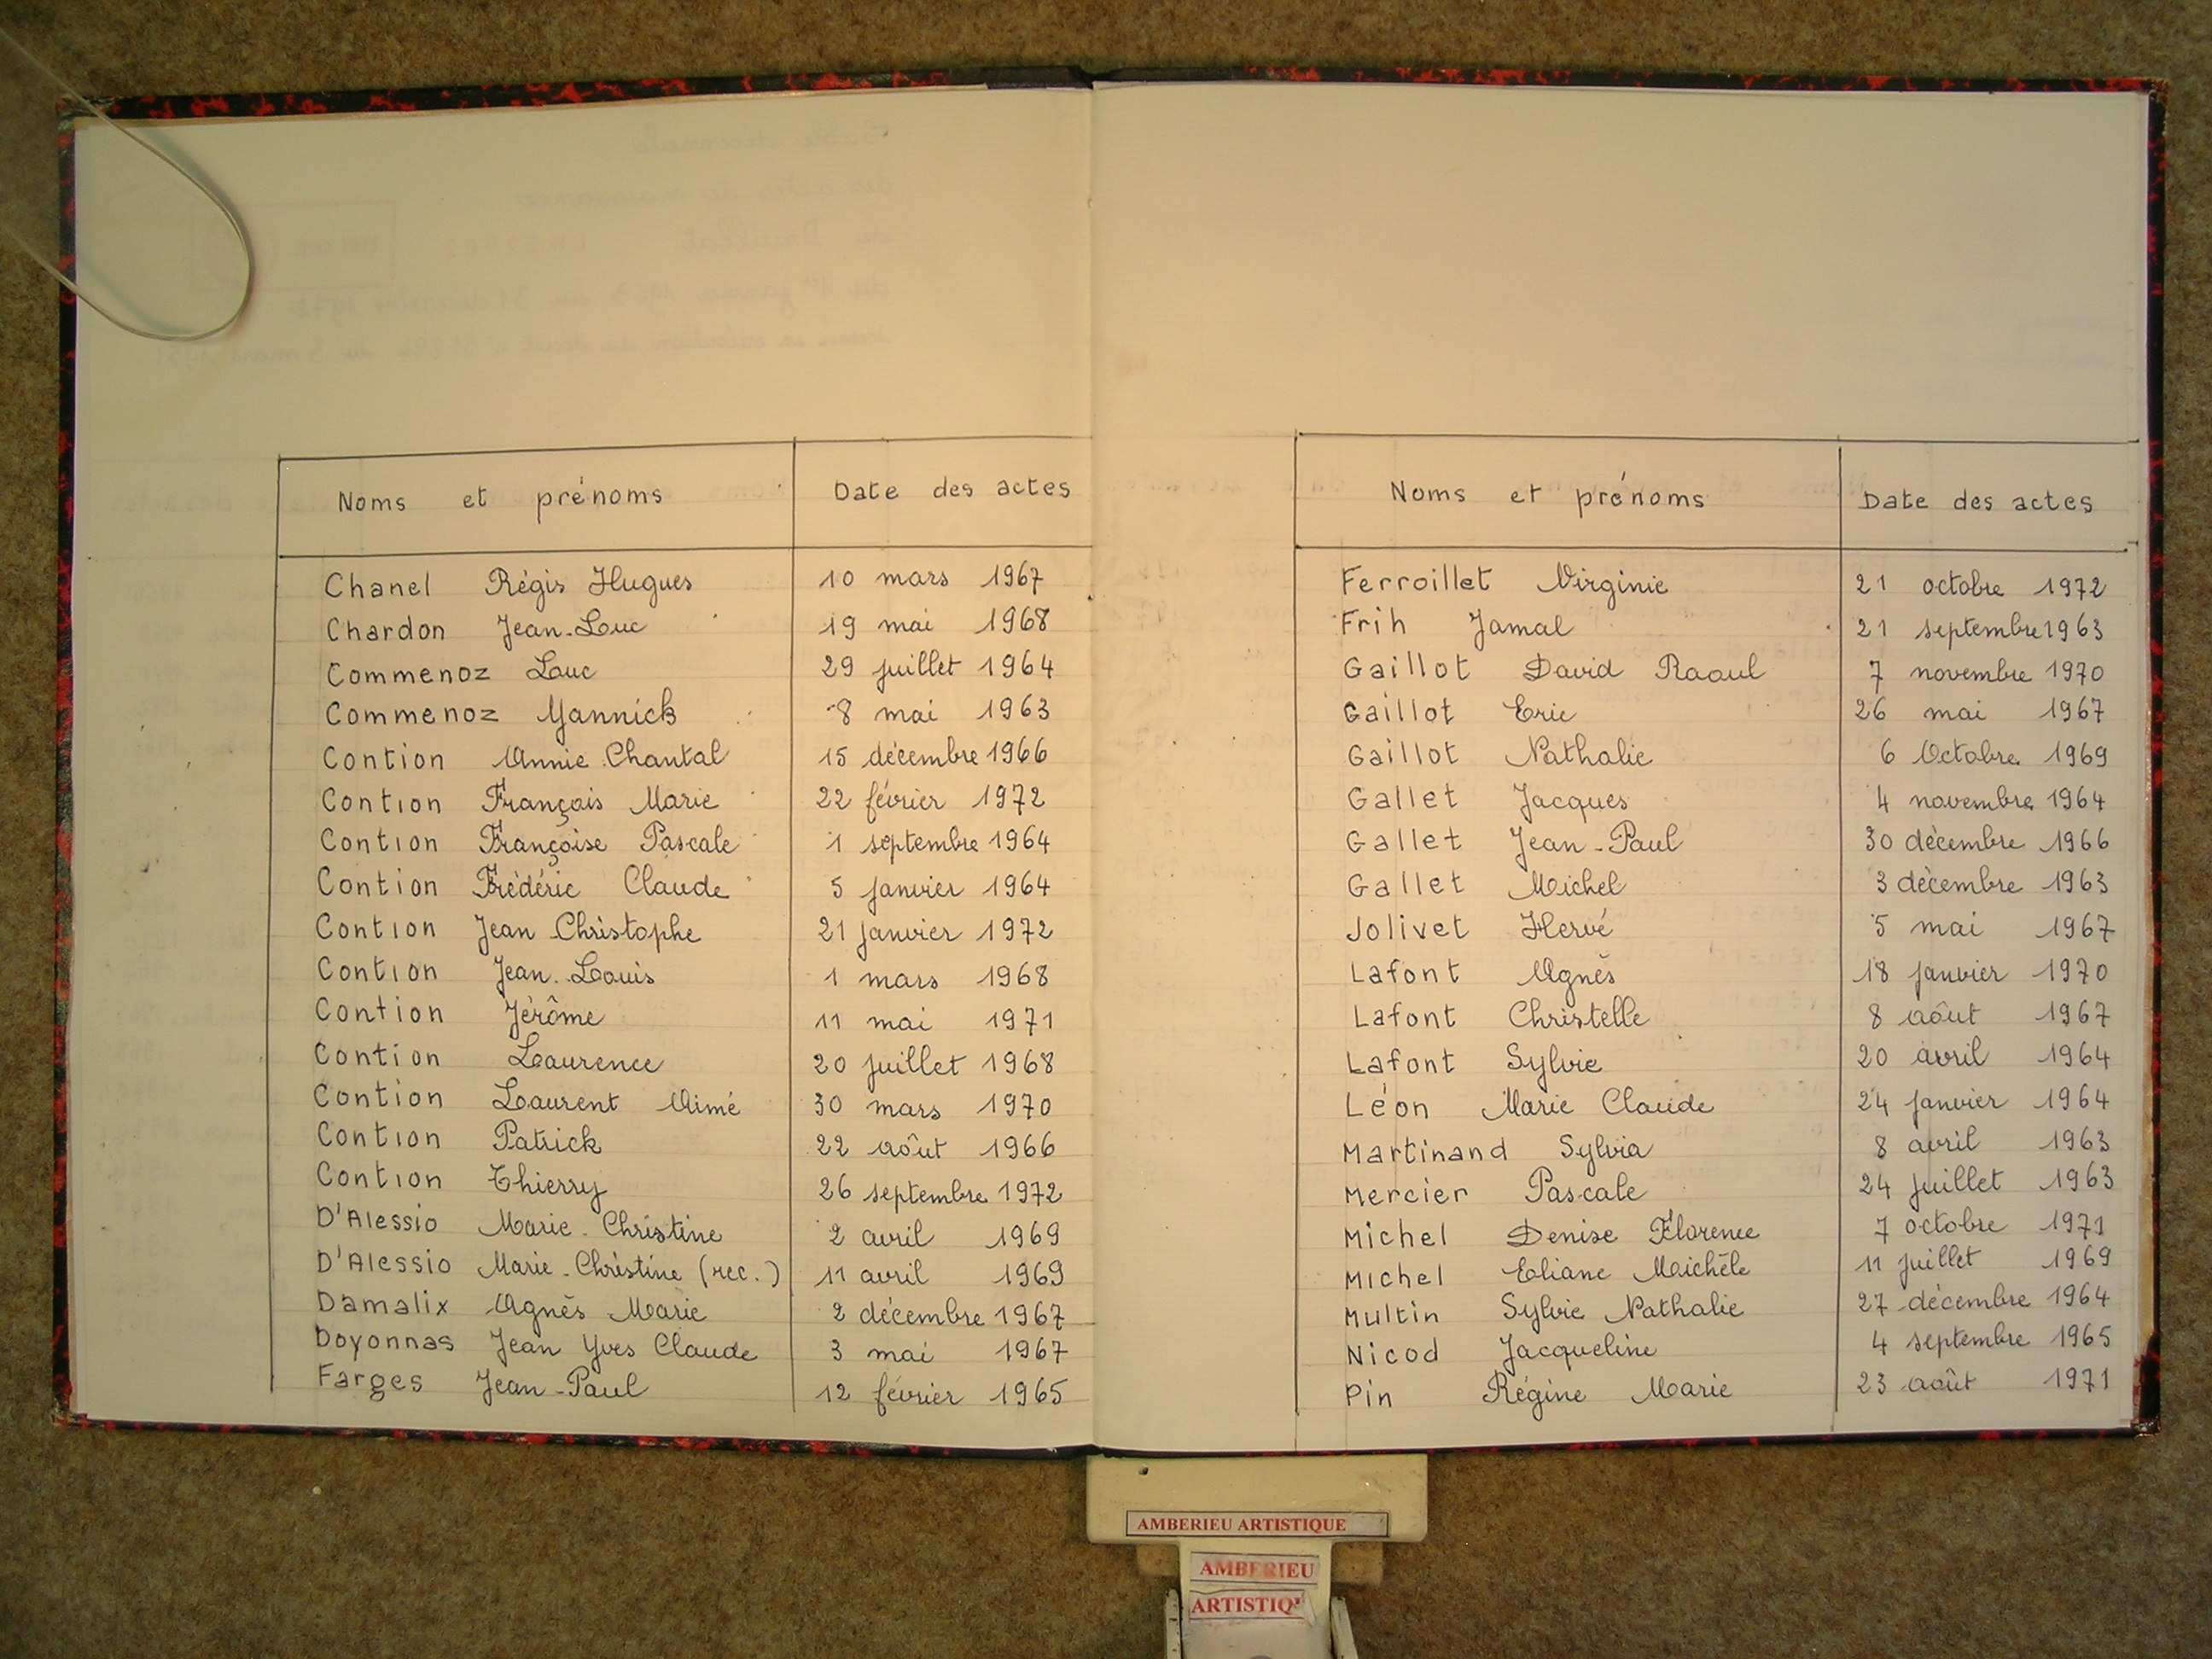 Noms et prénoms Date des actes
Chanel Régis Hugues 10 mars 1967
Chardon Jean-Luc 19 mai 1968
Commenoz Luc 29 juillet 1964
Commenoz Yannick 8 mai 1963
Contion Annie Chantal 15 décembre 1966
Contion François Marie 22 février 1972
Contion Françoise Pascale 1 septembre 1964
Contion Frédéric Claude 5 janvier 1964
Contion Jean Christophe 21 janvier 1972
Contion Jean-Louis 1 mars 1968
Contion Jérôme 11 mai 1971
Contion Laurence 20 juillet 1968
Contion Laurent Aimé 30 mars 1970
Contion Patrick 22 aôut 1966
Contion Thierry 26 septembre 1972
D'Alessio Marie-Christine 2 avril 1969
D'Alessio Marie-Christine (rec.) 11 avril 1969
Damalix Agnès Marie 2 décembre 1967
Doyonnas Jean Yves Claude 3 mai 1967
Farges Jean-Paul 12 février 1965
Noms et prénoms Date des actes
Ferroillet Virginie 21 octobre 1972
Frih Jamal 21 septembre 1963
Gaillot David Raoul 7 novembre 1970
Gaillot Eric 26 mai 1967
Gaillot Nathalie 6 Octobre 1969
Gallet Jacques 4 novembre 1964
Gallet Jean-Paul 30 décembre 1966
Gallet Michel 3 décembre 1963
Jolivet Hervé 5 mai 1967
Lafont Agnès 18 janvier 1970
Lafont Christelle 8 aôut 1967
Lafont Sylvie 20 avril 1964
Léon Marie Claude 24 janvier 1964
Martinand Sylvia 8 avril 1963
Mercier Pascale 24 juillet 1963
Michel Denise Florence 7 octobre 1971
Michel Eliane Michèle 11 juillet 1969
Multin Sylvie Nathalie 27 décembre 1964
Nicod Jacqueline 4 septembre 1965
Pin Régine Marie 23 août 1971
AMBERIEU ARTISTIQUE
AMBERIEU
ARTISTIQ